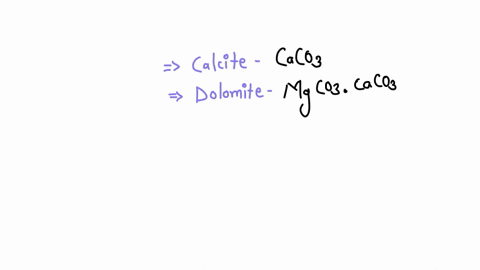 => Calcite - CaCO3
=> Dolomite - MgCO3.CaCO3